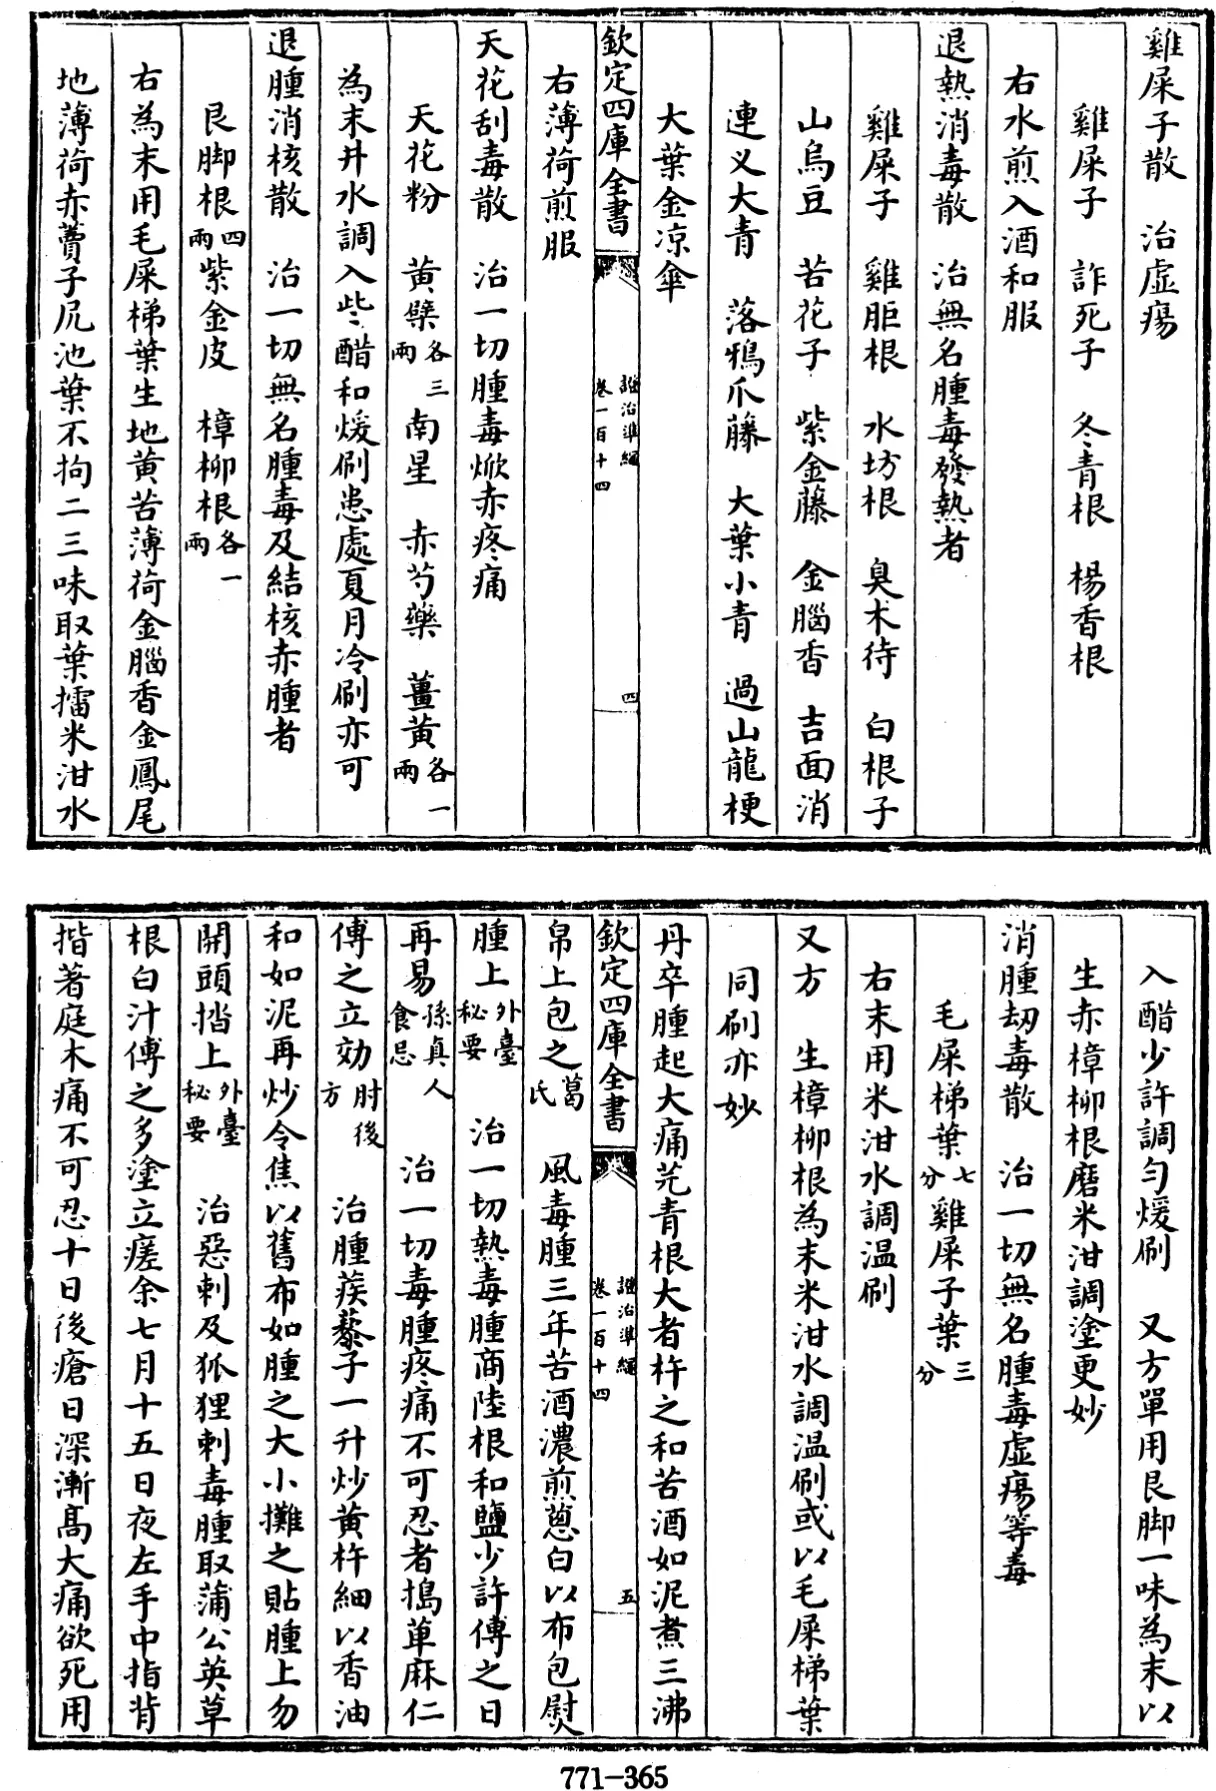 雞屎子散　治虛瘍
雞屎子　詐死子　冬青根　楊香根
右水煎入酒和服
退熱消毒散　治無名腫毒發熱者
雞屎子　雞距根　水坊根　臭木待　白根子
山烏豆　苦花子　紫金藤　金腦香　吉面消
連义大青　落鴉爪藤　大葉小青　過山龍梗
大葉金凉傘
欽定四庫全書　證治準繩　卷一百十四　四
右薄荷煎服
天花刮毒散　治一切腫毒焮赤疼痛
天花粉　黄蘗各三兩　南星　赤芍藥　薑黄各一兩
為末井水調入些醋和煖刷患處夏月冷刷亦可
退腫消核散　治一切無名腫毒及結核赤腫者
艮脚根四兩紫金皮　樟柳根各一兩
右為末用毛屎梯葉生地黄苦薄荷金腦香金鳳尾
地薄荷赤蕢子尻池葉不拘二三味取葉擂米泔水
入醋少許調勻煖刷　又方單用艮脚一味為末以
生赤樟柳根磨米泔調塗更妙
消腫刼毒散　治一切無名腫毒虛瘍等毒
毛屎梯葉七分雞屎子葉三分
右末用米泔水調温刷
又方　生樟柳根為末米泔水調温刷或以毛屎梯葉
同刷亦妙
丹卒腫起大痛芫青根大者杵之和苦酒如泥煮三沸
欽定四庫全書　證治準繩　卷一百十四　五
帛上包之葛氏　風毒腫三年苦酒濃煎蔥白以布包熨
腫上外臺秘要　治一切熱毒腫商陸根和鹽少許傅之日
再易孫真人食忌　治一切毒腫疼痛不可忍者搗萆麻仁
傅之立効肘後方　治腫蒺藜子一升炒黄杵細以香油
和如泥再炒令焦以舊布如腫之大小攤之貼腫上勿
開頭揩上外臺秘要　治惡刺及狐狸刺毒腫取蒲公英草
根白汁傅之多塗立瘥余七月十五日夜左手中指背
揩著庭木痛不可忍十日後瘡日深漸髙大痛欲死用
771-365